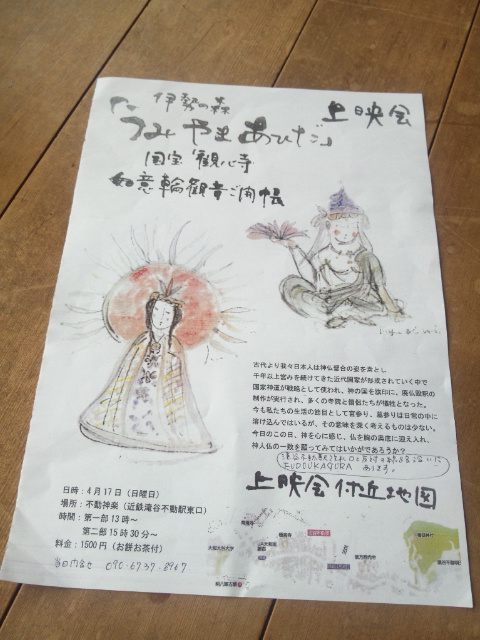 伊勢の森
「うみ やま あひだ」
上映会
国宝 観心寺
如意輪観音ご開帳
古代より我々日本人は神仏習合の姿を尊とし
千年以上営みを続けてきた近代国家が形成されていく中で
国家神道が戦略として使われ、神の国を旗印に、廃仏毀釈の
制作が実行され、多くの寺院と僧侶たちが犠牲となった。
今も私たちの生活の節目として宮参り、墓参りは日常の中に
溶け込んではいるが、その意味を深く考えるものは少ない。
今日のこの日、神を心に感じ、仏を胸の奥底に迎え入れ、
神人仏の一致を図ってみてはいかがであろうか?
FUDOUKAGURA あります。
上映会付近地図
日時:4月17日(日曜日)
場所:不動神楽(近鉄滝谷不動駅東口)
時間:第一部 13時〜
第二部 15時30分〜
料金:1500円(お餅お茶付)
当日問合せ 090-6737-8967